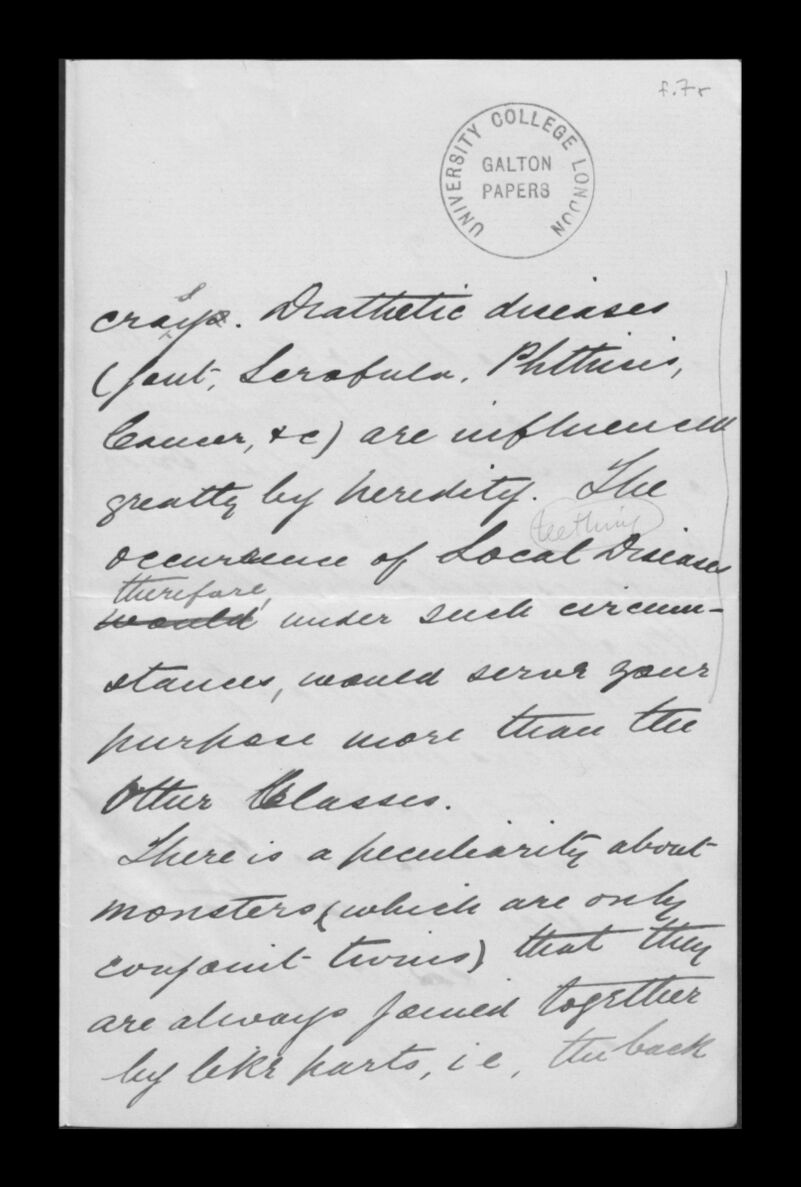 f.7r
UNIVERSITY COLLEGE LONDON
GALTON
PAPERS
Diathetic diseases
(Gout, Scrofula, Phthisis,
Cancer, &c) are influenced
greatly by heredity. The
teething
occurrence of Local Diseases
therefore,
would under such circum-
stances, would serve your
purpose more than the
Other Classes.
There is a peculiarity about
monsters (which are only
conjoint twins) that they
are always joined together
by like parts, i e, the back